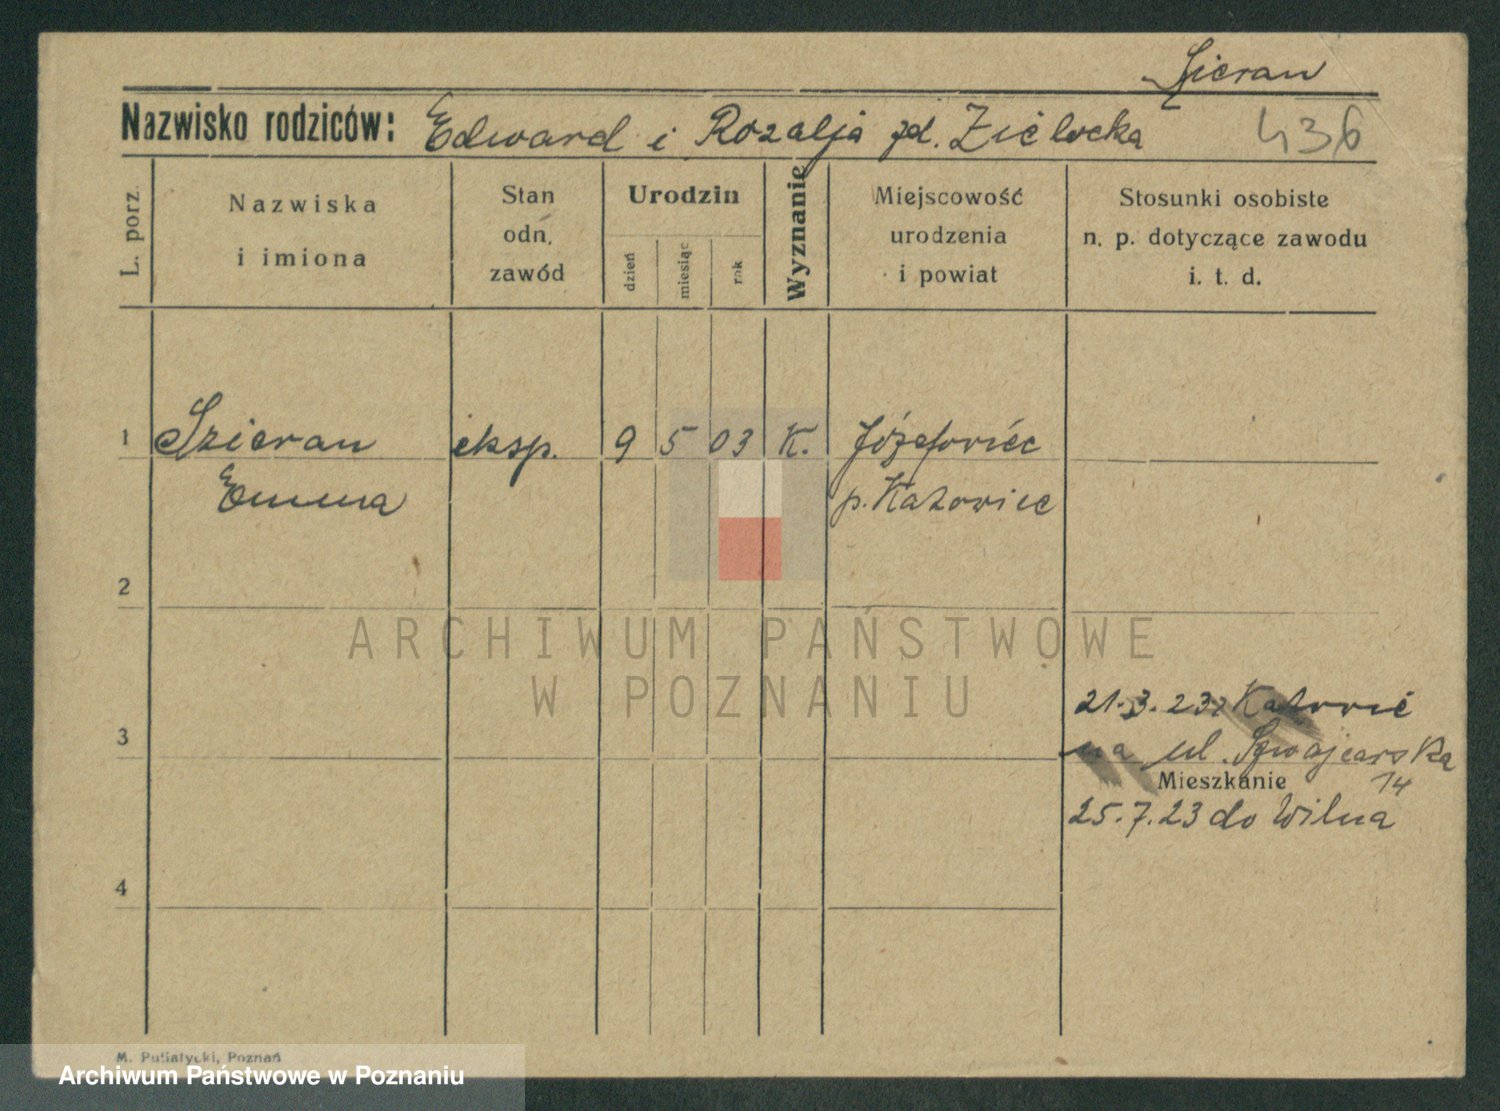 Szieran
Nazwisko rodziców: Edward i Rozalja zd. Zielocka 436
L. porz.
Nazwiska
i imiona
Stan
odn.
zawód
Urodzin
dzień
miesiąc
rok
Wyznanie
Miejscowość
urodzenia
i powiat
Stosunki osobiste
n. p. dotyczące zawodu
i. t. d.
1 Szieran eksp. 9 5 03 K. Józefowiec
Emma p. Katowice
2
ARCHIWUM PAŃSTWOWE
W POZNANIU
21.3.23 z Katowic
3
na ul. Szwajcarska
Mieszkanie 14
25.7.23 do Wilna
4
M. Putiatycki, Poznań
Archiwum Państwowe w Poznaniu